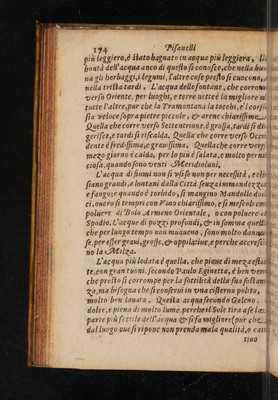 174 Pisanelli
più leggiero, è stato bagnato in acqua più leggiera. La
bontà dell'acqua anco di questo si conosce, che nella buo
na gli herbaggi, i legumi, l'altre cose presto si cuocono,
nella trista tardi. L'acqua delle fontane, che corrono
verso Oriente, per luoghi, e terre nette è la migliore
tutte l'altre, pur che la Tramontana la tocchi, e scor
sia veloce sopra pietre piccole, & arene chiarissime
Quella che corre verso Settentrione, è grossa, tardi si di
gerisce, e tardi si riscalda. Quella che corre verso Occi
dente è freddissima, e gravissima. Quella che corre verso
mezo giorno è calda, per lo più salata, e molto perni
ciosa, quando sono venti Meridionali.
L'acqua di fiumi non si usi se non per necessità, e ch
siano grandi, e lontani dalla Città senza immondezza
e fango; e quando è torbido, si mangino Mandole dol
ci, overo si tempri con Vino chiarissimo, e si mescoli con
poluere di Bolo Armeno Orientale, o con poluere
Spodio. L'acque di pozzi profondi, & in somma quelle
che per lungo tempo non muoveno, sono molto danno
se, per esser gravi, grosse, & oppilative, e perche accresco
no la Milza.
L'acqua più lodata è quella, che piove di meza esta
te, con gran tuoni. secondo Paulo Eginetta, è ben vero
che presto si corrompe per la suttilità della sua sostan
za, ma bisogna che si conservi in una cisterna polita,
molto ben lavata. Questa acqua secondo Galeno
dolce, e piena di molto lume, perche il Sole tira a se la
parte più sottile dell'acqua & si fa migliore (pur che
dal luogo ove si ripone non prenda mala qualità, o cat
tivo